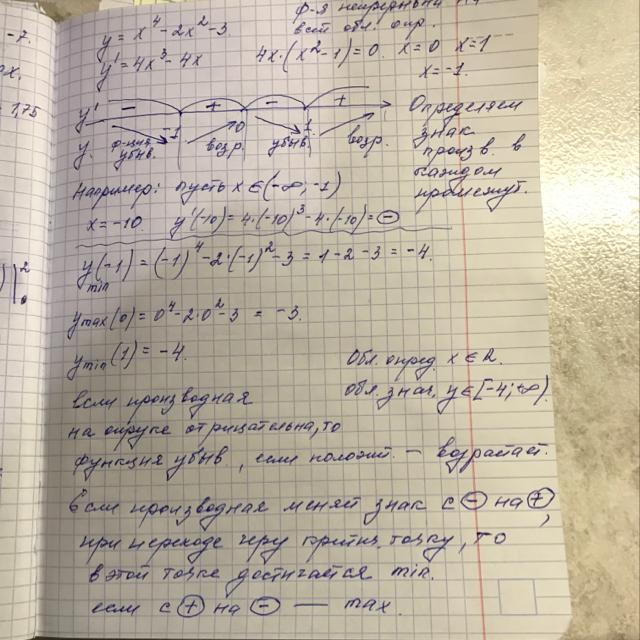 -7.
ф-я непрерывна на
всей обл. опр.
y = x⁴ - 2x² - 3
y' = 4x³ - 4x   4x·(x² - 1) = 0.  x = 0  x = 1
x = -1.
1,75
y'  -  +  -  +
-1  0  1
y.  убыв.  возр.  убыв.  возр.
Определяем
знак
произв. в
каждом
промежут.
Например: пусть x ∈ (-∞, -1)
x = -10.  y'(-10) = 4·(-10)³ - 4·(-10) = ⊖
y min (-1) = (-1)⁴ - 2·(-1)² - 3 = 1 - 2 - 3 = -4.
y max (0) = 0⁴ - 2·0² - 3 = -3.
y min (1) = -4.
Обл. опред. x ∈ R.
Обл. знач. y ∈ [-4; ∞)
если производная
на отрицательна, то
функция убыв., если полож. — возрастает.
Если производная меняет знак с ⊖ на ⊕,
при переходе через критич. точку, то
в этой точке достигается min.
если с ⊕ на ⊖ — max.